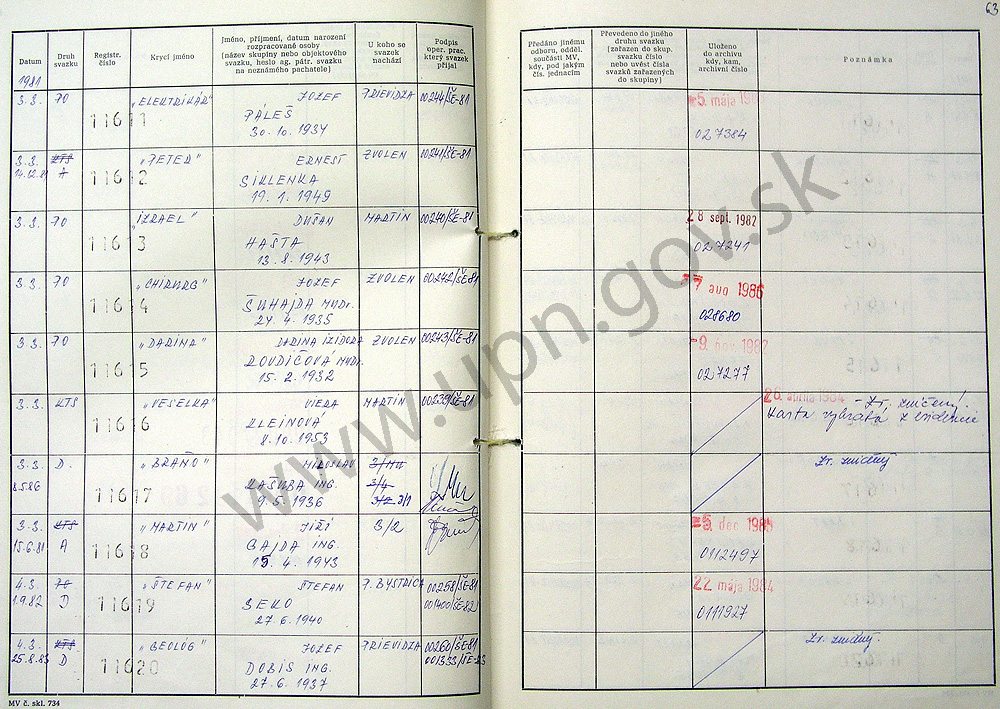 63
Datum
Druh svazku
Registr. číslo
Krycí jméno
Jméno, příjmení, datum narození rozpracované osoby (název skupiny nebo objektového svazku, heslo ag. pátr. svazku na neznámého pachatele)
U koho se svazek nachází
Podpis oper. prac. který svazek přijal
Předáno jinému odboru, odděl. součásti MV, kdy, pod jakým čís. jednacím
Převedeno do jiného druhu svazku (zařazen do skup. svazku, číslo nebo uvést čísla svazků zařazených do skupiny)
Uloženo do archivu kdy, kam, archivní číslo
Poznámka
1981
3.3. 70 11611 „ELEKTRIKÁR" JOZEF PRIEVIDZA 00244/ŠE-81
PÁLEŠ
30.10.1934
5. mája
027384
3.3. KTS 11612 „PETER" ERNEST ZVOLEN 00241/ŠE-81
14.12.81 A SIKLENKA
19.1.1949
3.3. 70 11613 „IZRAEL" DUŠAN MARTIN 00240/ŠE-81
HAŠTA
13.8.1943
28 sept. 1982
027241
3.3. 70 11614 „CHIRURG" JOZEF ZVOLEN 00242/ŠE-81
ŠUHAJDA MUDr.
24.4.1935
7 aug 1986
028680
3.3. 70 11615 „DARINA" DARINA IZIDORA ZVOLEN 00243/ŠE-81
15.2.1932
9. nov 1982
027277
3.3. KTS 11616 „VESELKA" VIERA MARTIN 00239/ŠE-81
KLEINOVÁ
8.10.1953
26. apríla 1984 - Zv. zničený!
Karta vybratá z evidencie
3.3. D. 11617 „BRAŇO" MIROSLAV
8.5.86 KAŠUBA ING.
9.5.1936
3/4
3/2 3/1
Zv. zničený
3.3. KTS 11618 „MARTIN" JIŘÍ 3/2
15.6.81 A GAJDA ING.
15.4.1943
5. dec 1985
0112497
4.3. 70 11619 „ŠTEFAN" ŠTEFAN P. BYSTRICA 00258/ŠE-81
1.9.82 D BEKO 001400/ŠE-82
27.6.1940
22 mája 1984
0111927
4.3. KTS 11620 „GEOLÓG" JOZEF PRIEVIDZA 00260/ŠE-81
25.8.83 D DOBIS ING.
27.6.1937
Zv. zničený.
MV č. skl. 734
www.upn.gov.sk